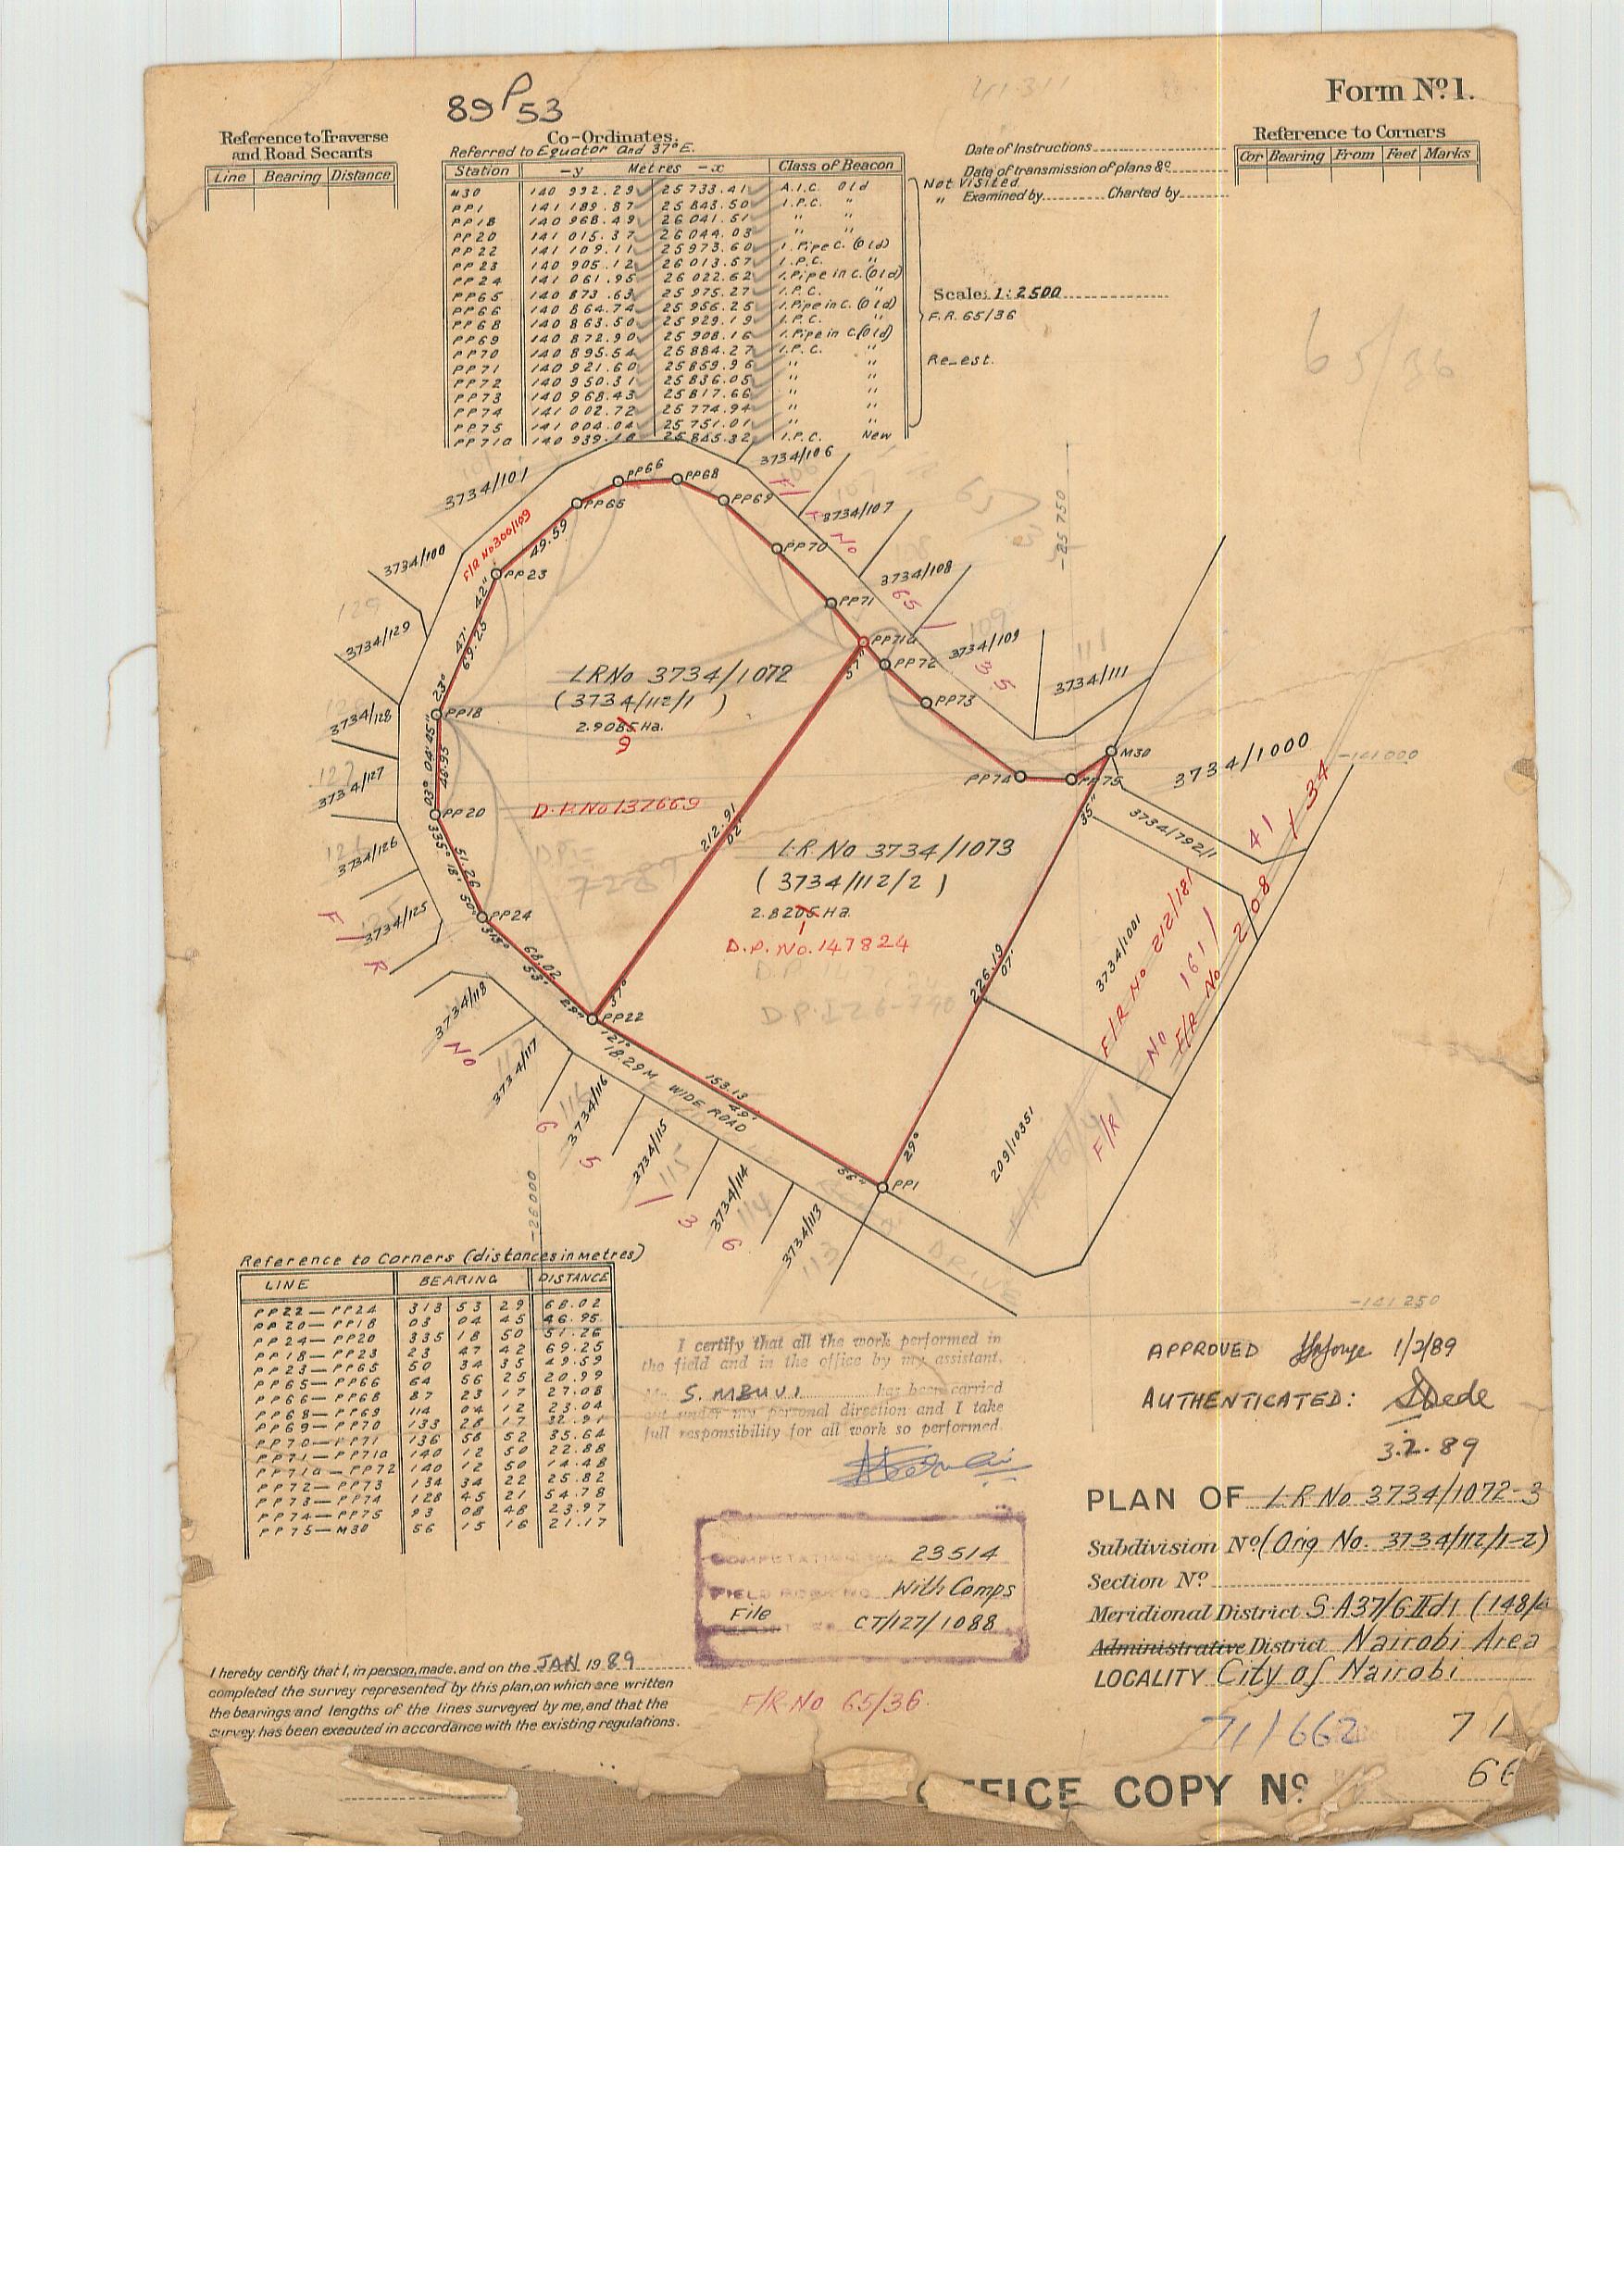 89 P 53
Form Nº 1.
Reference to Traverse
and Road Secants
Line Bearing Distance
Co-Ordinates.
Referred to Equator and 37°E.
Station -y Metres -x Class of Beacon
M30 140 992.29 25 733.41 A.I.C. Old
PP1 141 189.87 25 843.50 I.P.C. "
PP18 140 968.49 26 041.51 " "
PP20 141 015.37 26 044.03 " "
PP22 141 109.11 25973.60 I.Pipe C. (Old)
PP23 140 905.12 26 013.57 I.P.C. "
PP24 141 061.95 26 022.62 I.Pipe in C. (Old)
PP65 140 873.63 25 975.27 I.P.C. "
PP66 140 864.74 25 956.25 I.Pipe in C. (Old)
PP68 140 863.50 25 929.19 I.P.C. "
PP69 140 872.90 25 908.16 I.Pipe in C.(Old)
PP70 140 895.54 25 884.27 I.P.C. "
PP71 140 921.60 25 859.96 " "
PP72 140 950.31 25 836.05 " "
PP73 140 968.43 25 817.66 " "
PP74 141 002.72 25 774.94 " "
PP75 141 004.04 25 751.01 " "
PP71a 140 939.18 25 845.32 I.P.C. New
Not Visited
"
F.R. 65/36
Re-est.
Date of Instructions
Date of transmission of plans &c
Examined by Charted by
Scale: 1:2500
Reference to Corners
Cor Bearing From Feet Marks
65/36
3734/101
3734/106
3734/107
3734/100
3734/108
3734/129
3734/109
3734/111
3734/128
3734/127
3734/126
3734/125
F/R No 300/109
F/R No 65/35
PP66
PP68
PP65
PP69
49.59
PP70
PP23
PP71
23° 47' 42"
69.25
PP71a
PP72
PP73
LR No 3734/1072
(3734/112/1)
2.9085 Ha.
9
PP18
03° 04' 45"
46.95
M30
PP74
PP75
3734/1000
-141000
-25 750
PP20
D.P. No 137669
335° 18' 50"
51.26
212.91
37° 02' 57"
L.R. No 3734/1073
(3734/112/2)
2.8205 Ha.
1
D.P. No. 147824
3734/792/1
PP24
313° 53' 29"
68.02
PP22
226.19
29° 07' 35"
3734/1001
F/R No 212/181
F/R No 161/41
F/R No 208/134
3734/118
3734/117
3734/116
3734/115
3734/114
3734/113
F/R No 65/36
121° 49' 56"
153.13
18.29M WIDE ROAD
PP1
209/10351
DRIVE
-26000
-141 250
Reference to Corners (distances in Metres)
LINE BEARING DISTANCE
PP22—PP24 313 53 29 68.02
PP20—PP18 03 04 45 46.95
PP24—PP20 335 18 50 51.26
PP18—PP23 23 47 42 69.25
PP23—PP65 50 34 35 49.59
PP65—PP66 64 56 25 20.99
PP66—PP68 87 23 17 27.08
PP68—PP69 114 04 12 23.04
PP69—PP70 133 28 17 32.91
PP70—PP71 136 58 52 35.64
PP71—PP71a 140 12 50 22.88
PP71a—PP72 140 12 50 14.48
PP72—PP73 134 34 22 25.82
PP73—PP74 128 45 21 54.78
PP74—PP75 93 08 48 23.97
PP75—M30 56 15 16 21.17
I certify that all the work performed in
the field and in the office by my assistant.
Mr. S. MBUVI has been carried
out under my personal direction and I take
full responsibility for all work so performed.
APPROVED 1/2/89
AUTHENTICATED:
3.2.89
COMPUTATION No. 23514
FIELD BOOK NO. With Comps
File CT/127/1088
F/R No 65/36.
PLAN OF LR No 3734/1072-3
Subdivision Nº (Orig No. 3734/112/1-2)
Section Nº
Meridional District S.A37/GIId1 (148/4
Administrative District Nairobi Area
LOCALITY City of Nairobi
I hereby certify that I, in person, made, and on the JAN 1989
completed the survey represented by this plan, on which are written
the bearings and lengths of the lines surveyed by me, and that the
survey has been executed in accordance with the existing regulations.
71/662
71
66
OFFICE COPY Nº